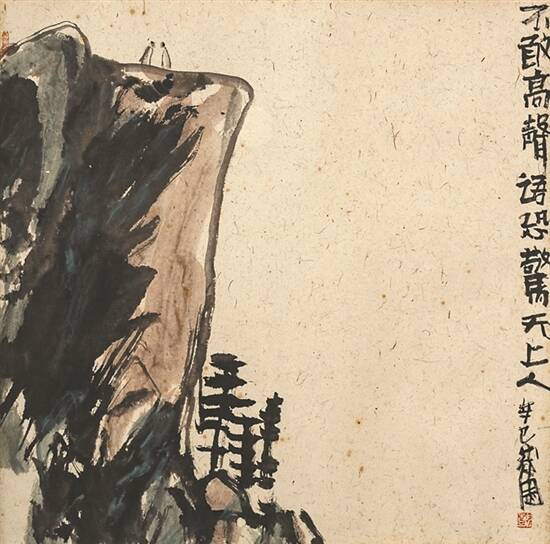 不敢高聲語恐驚天上人
辛巳